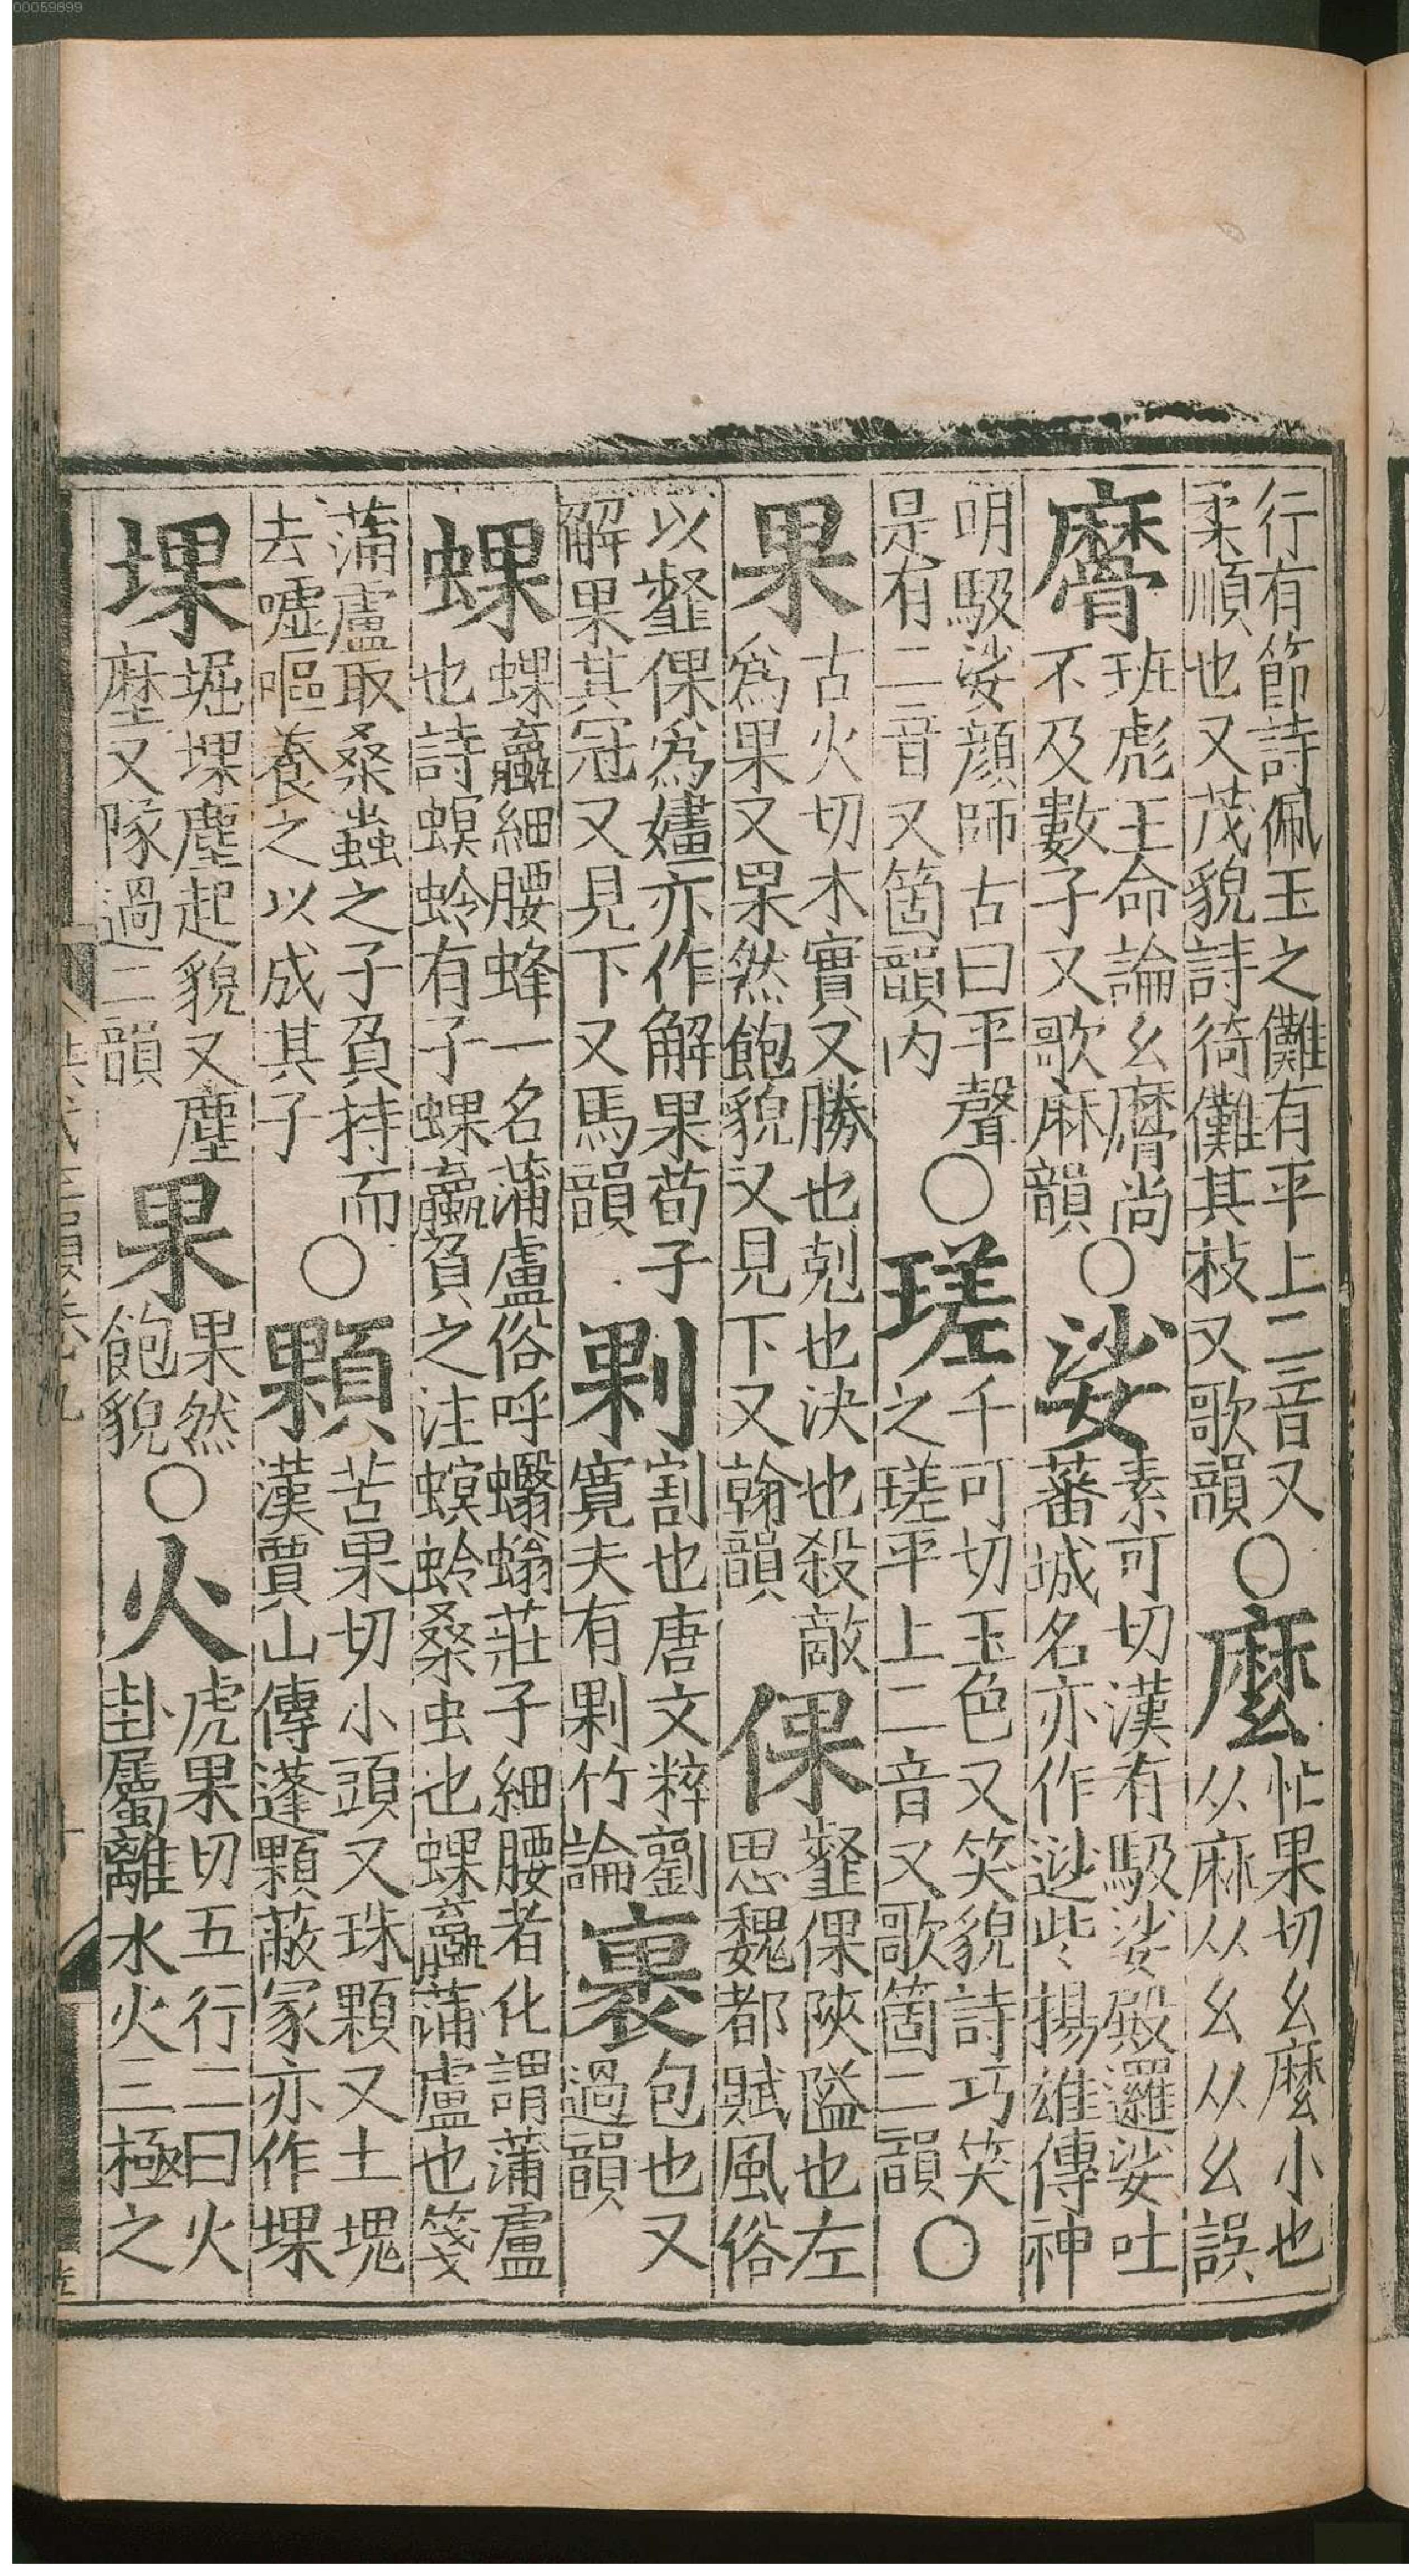 行有節詩佩玉之儺有平上二音又
柔順也又茂貌詩猗儺其枝又歌韻
〇麼
忙果切幺麼小也
从麻从幺从幺誤
麿
班彪王命論幺麿尚
不及數子又歌麻韻
〇娑
素可切漢有馺娑殿邏娑吐
蕃城名亦作逤些揚雄傳神
明馺娑顔師古曰平聲
是有二音又箇韻内
〇瑳
千可切玉色又笑貌詩巧笑
之瑳平上二音又歌箇二韻
〇
果
古火切木實又勝也剋也決也殺敵
爲果又果然飽貌又見下又翰韻
倮
壡倮陝隘也左
思魏都賦風俗
以壡倮爲嫿亦作解果荀子
解果其冠又見下又馬韻
剿
割也唐文粹劉
寬夫有剿竹論
裹
包也又
過韻
蜾
蜾蠃細腰蜂一名蒲盧俗呼蠮螉莊子細腰者化謂蒲盧
也詩螟蛉有子蜾蠃負之注螟蛉桑虫也蜾蠃蒲盧也箋
蒲盧取桑蟲之子負持而
去噓嘔養之以成其子
〇顆
苦果切小頭又珠顆又土塊
漢賈山傳蓬顆蔽冢亦作堁
堁
堀堁塵起貌又塵
塺又隊過二韻
果
果然
飽貌
〇火
虎果切五行二曰火
卦屬離水火三極之
00059899